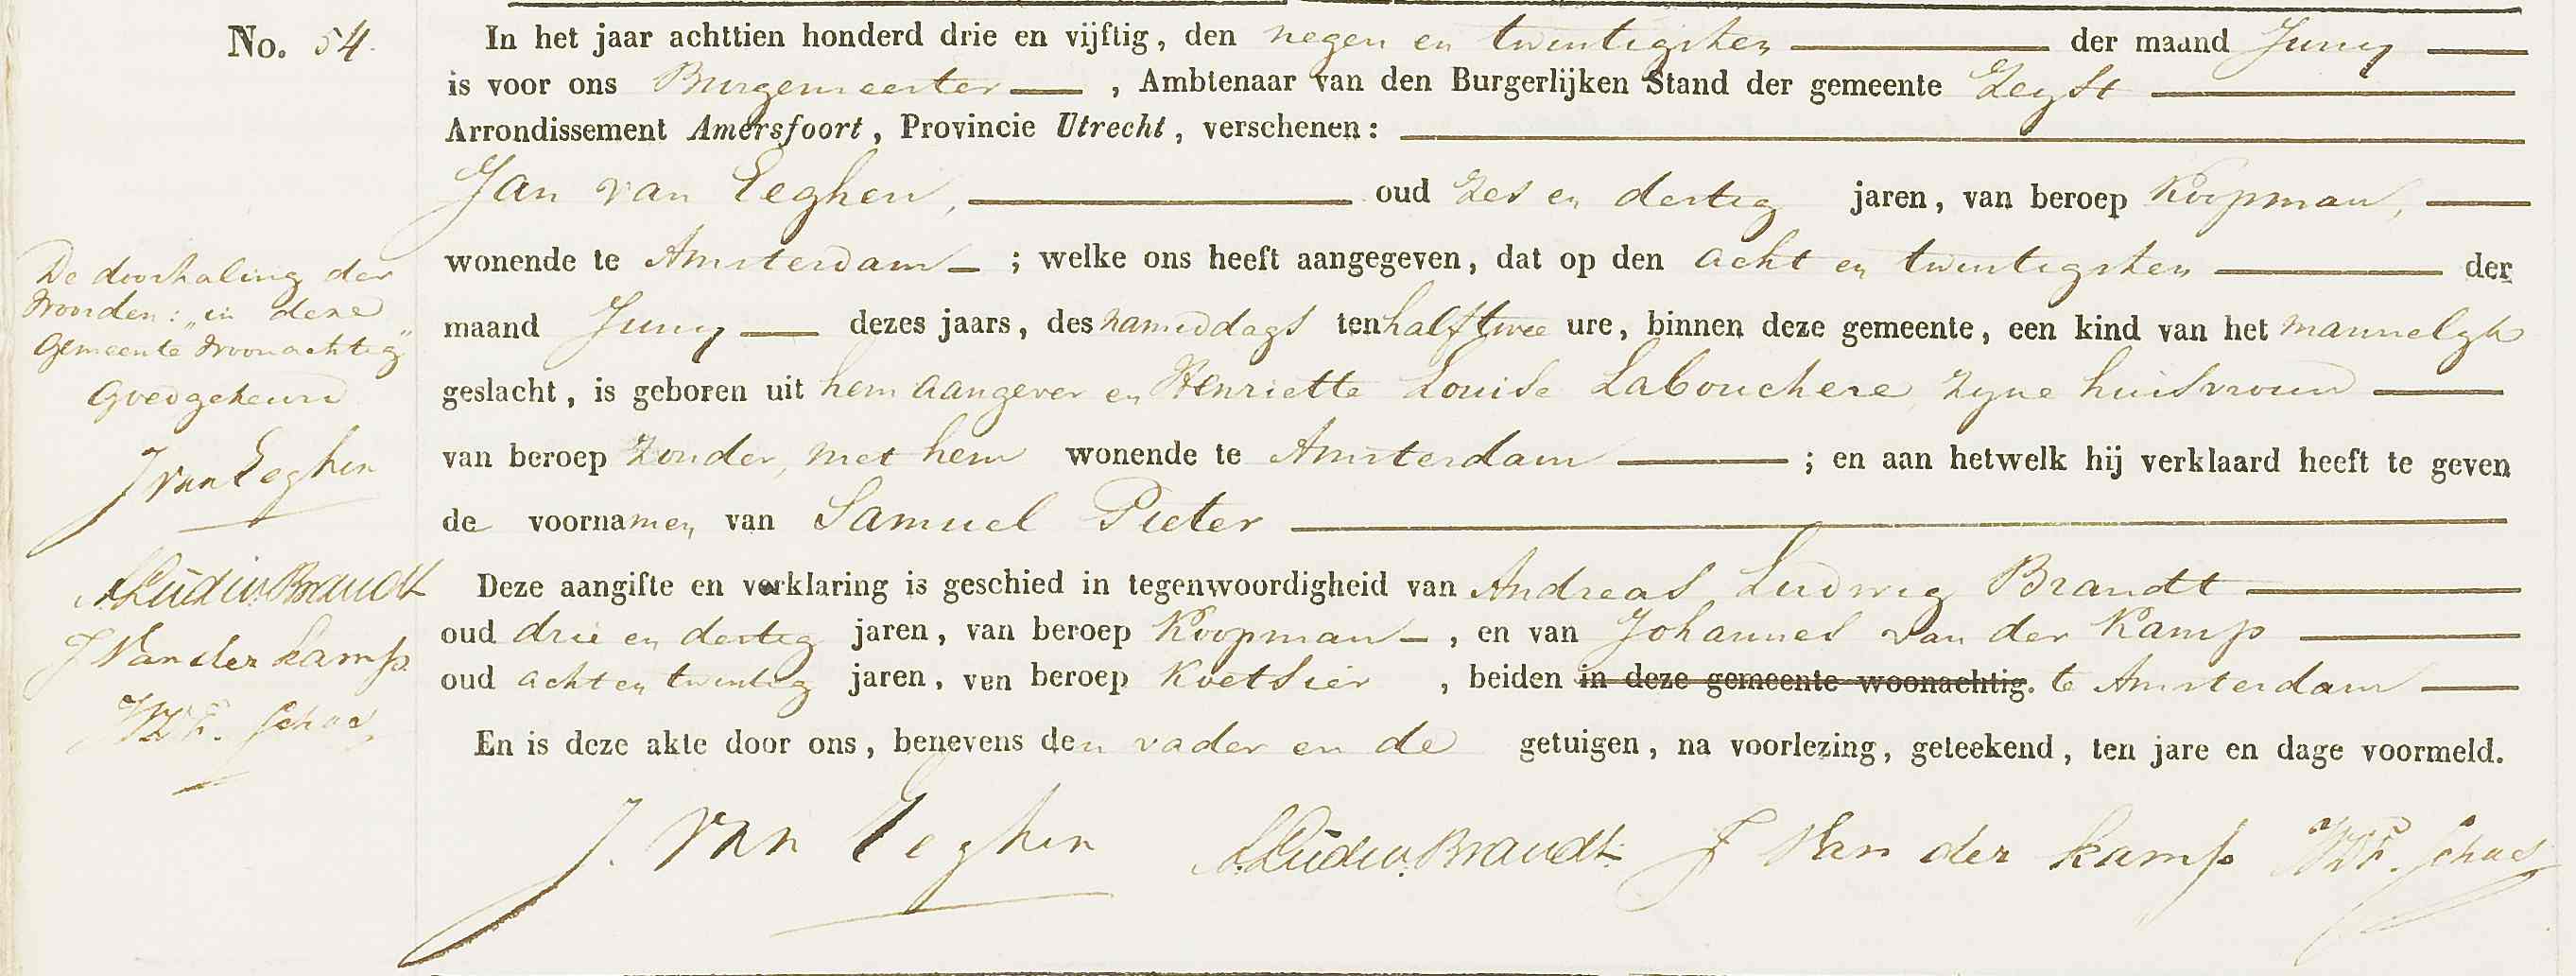 No. 54.
In het jaar achttien honderd drie en vijftig, den negen en twintigsten der maand Juny
is voor ons Burgemeester, Ambtenaar van den Burgerlijken Stand der gemeente Zeyst
Arrondissement Amersfoort, Provincie Utrecht, verschenen:
Jan van Eeghen, oud zes en dertig jaren, van beroep Koopman,
wonende te Amsterdam; welke ons heeft aangegeven, dat op den acht en twintigsten der
maand Juny dezes jaars, des namiddags ten half twee ure, binnen deze gemeente, een kind van het mannelyk
geslacht, is geboren uit hem aangever en Henriette Louise Labouchere, zyne huisvrouw
van beroep zonder, met hem wonende te Amsterdam; en aan hetwelk hij verklaard heeft te geven
de voornamen van Samuel Pieter
Deze aangifte en verklaring is geschied in tegenwoordigheid van Andreas Ludwig Brandt
oud drie en dertig jaren, van beroep Koopman, en van Johannes van der Kamp
oud acht en twintig jaren, van beroep Koetsier, beiden in deze gemeente woonachtig. te Amsterdam
En is deze akte door ons, benevens den vader en de getuigen, na voorlezing, geteekend, ten jare en dage voormeld.
J. van Eeghen A Ludw. Brandt J Van der Kamp
De doorhaling der
woorden: "in deze
Gemeente woonachtig"
Goedgekeurd
J van Eeghen
A Ludw. Brandt
J Van der Kamp